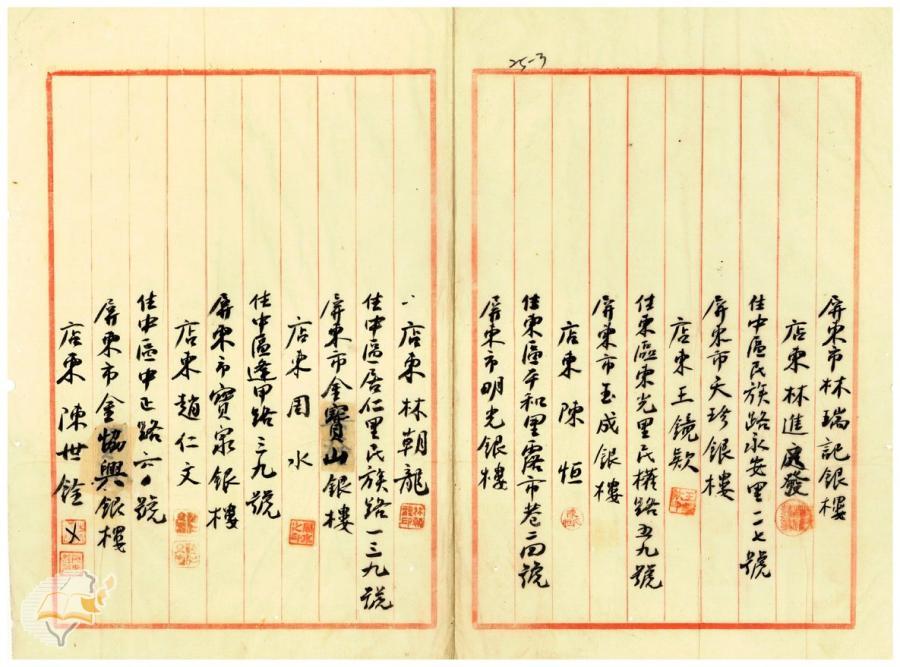 25-3
屏東市林瑞記銀樓
店東林進發
住中區民族路永安里一二七號
屏東市天珍銀樓
店東王鏡欵
住東區東光里民權路五九號
屏東市玉成銀樓
店東陳恒
住東區平和里露市巷二四號
屏東市明光銀樓
店東林朝龍
住中區居仁里民族路一三九號
屏東市金寶山銀樓
店東周水
住中區達甲路三九號
屏東市寶泉銀樓
店東趙仁文
住中區中正路六〇號
屏東市金協興銀樓
店東陳世銓